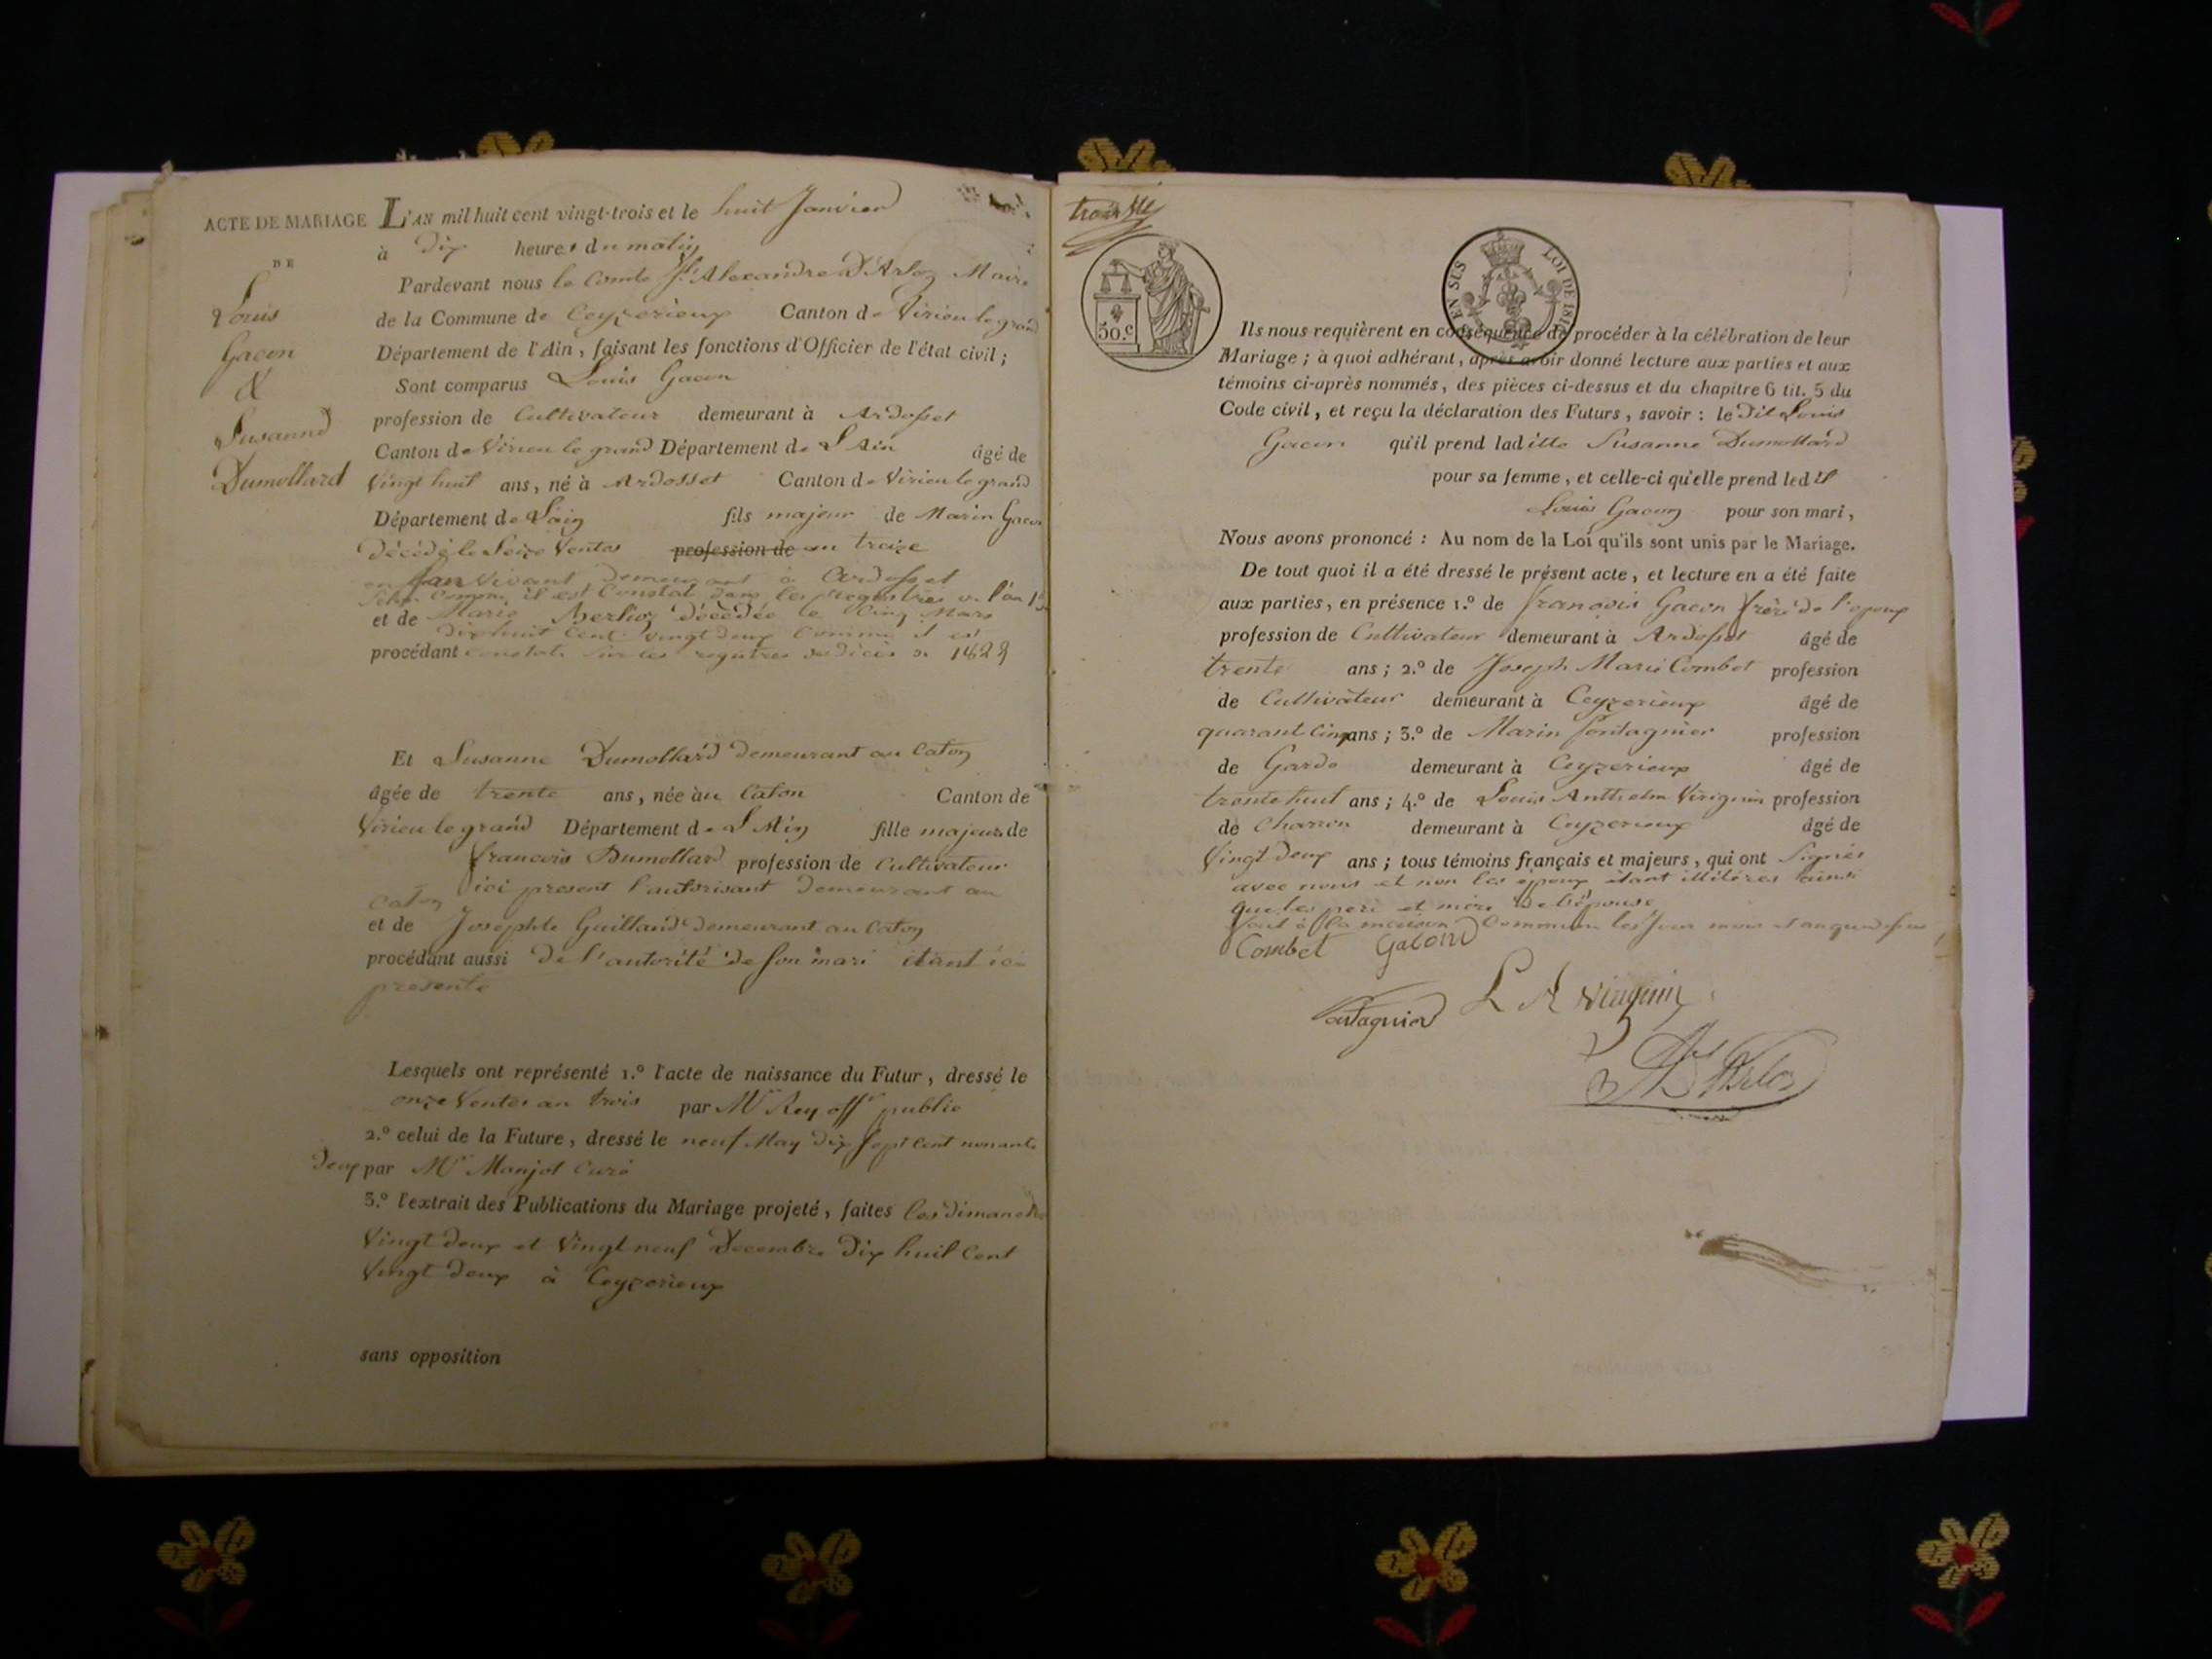 ACTE DE MARIAGE
DE
Louis
Gacon
&
Susanne
Dumollard
L'AN mil huit cent vingt-trois et le huit Janvier
à Dix heures du matin
Pardevant nous le Comte Alexandre D'Arloz Maire
de la Commune de Ceyzerieux Canton de Virieu le grand
Département de l'Ain, faisant les fonctions d'Officier de l'état civil;
Sont comparus Louis Gacon
profession de Cultivateur demeurant à Ardosset
Canton de Virieu le grand Département de L'Ain âgé de
Vingt huit ans, né à Ardosset Canton de Virieu le grand
Département de L'ain fils majeur de Marin Gacon
décédé le Seize Ventos profession de an treize
en Son Vivant demeurant à Ardosset
Comme il est Constat dans les Registres de l'an
et de Marie Berlioz décédée le Cinq Mars
Dix huit Cent vingt deux Comme il est
procédant constaté sur les registres de décès de 1822
Et Susanne Dumollard demeurant au Caton
âgée de trente ans, née au Caton Canton de
Virieu le grand Département de L'Ain fille majeure de
francois Dumollard profession de Cultivateur
ici present l'autorisant Demeurant au
Caton
et de Josephte Guilland demeurant au Caton
procédant aussi de l'autorité de son mari étant ici
presente
Lesquels ont représenté 1.º l'acte de naissance du Futur, dressé le
onze Ventos an trois par Mr Rey offr public
2.º celui de la Future, dressé le neuf May dix sept cent nonante
deux par Mr Manjot Curé
3.º l'extrait des Publications du Mariage projeté, faites les dimanches
Vingt deux et Vingt neuf Decembre Dix huit Cent
Vingt deux à Ceyzerieux
sans opposition
50.c
EN SUS LOI DE 1816
Ils nous requièrent en conséquence de procéder à la célébration de leur
Mariage; à quoi adhérant, après avoir donné lecture aux parties et aux
témoins ci-après nommés, des pièces ci-dessus et du chapitre 6 tit. 5 du
Code civil, et reçu la déclaration des Futurs, savoir: le dit Louis
Gacon qu'il prend laditte Susanne Dumollard
pour sa femme, et celle-ci qu'elle prend led it
Louis Gacon pour son mari,
Nous avons prononcé: Au nom de la Loi qu'ils sont unis par le Mariage.
De tout quoi il a été dressé le présent acte, et lecture en a été faite
aux parties, en présence 1.º de françois Gacon frère de l'epoux
profession de Cultivateur demeurant à Ardosset âgé de
trente ans; 2.º de Joseph Marie Combet profession
de Cultivateur demeurant à Ceyzerieux âgé de
quarant Cinq ans; 3.º de Marin fontagnier profession
de Garde demeurant à Ceyzerieux âgé de
trente huit ans; 4.º de Louis Anthelm Virignin profession
de Charron demeurant à Ceyzerieux âgé de
Vingt deux ans; tous témoins français et majeurs, qui ont Signés
avec nous et non les époux étant illitérés ainsi
que les pere et mere de l'épouse
fait à la maison Commune les jour mois et an que dessus
Combet Gacon
L A virignin
D'Arloz